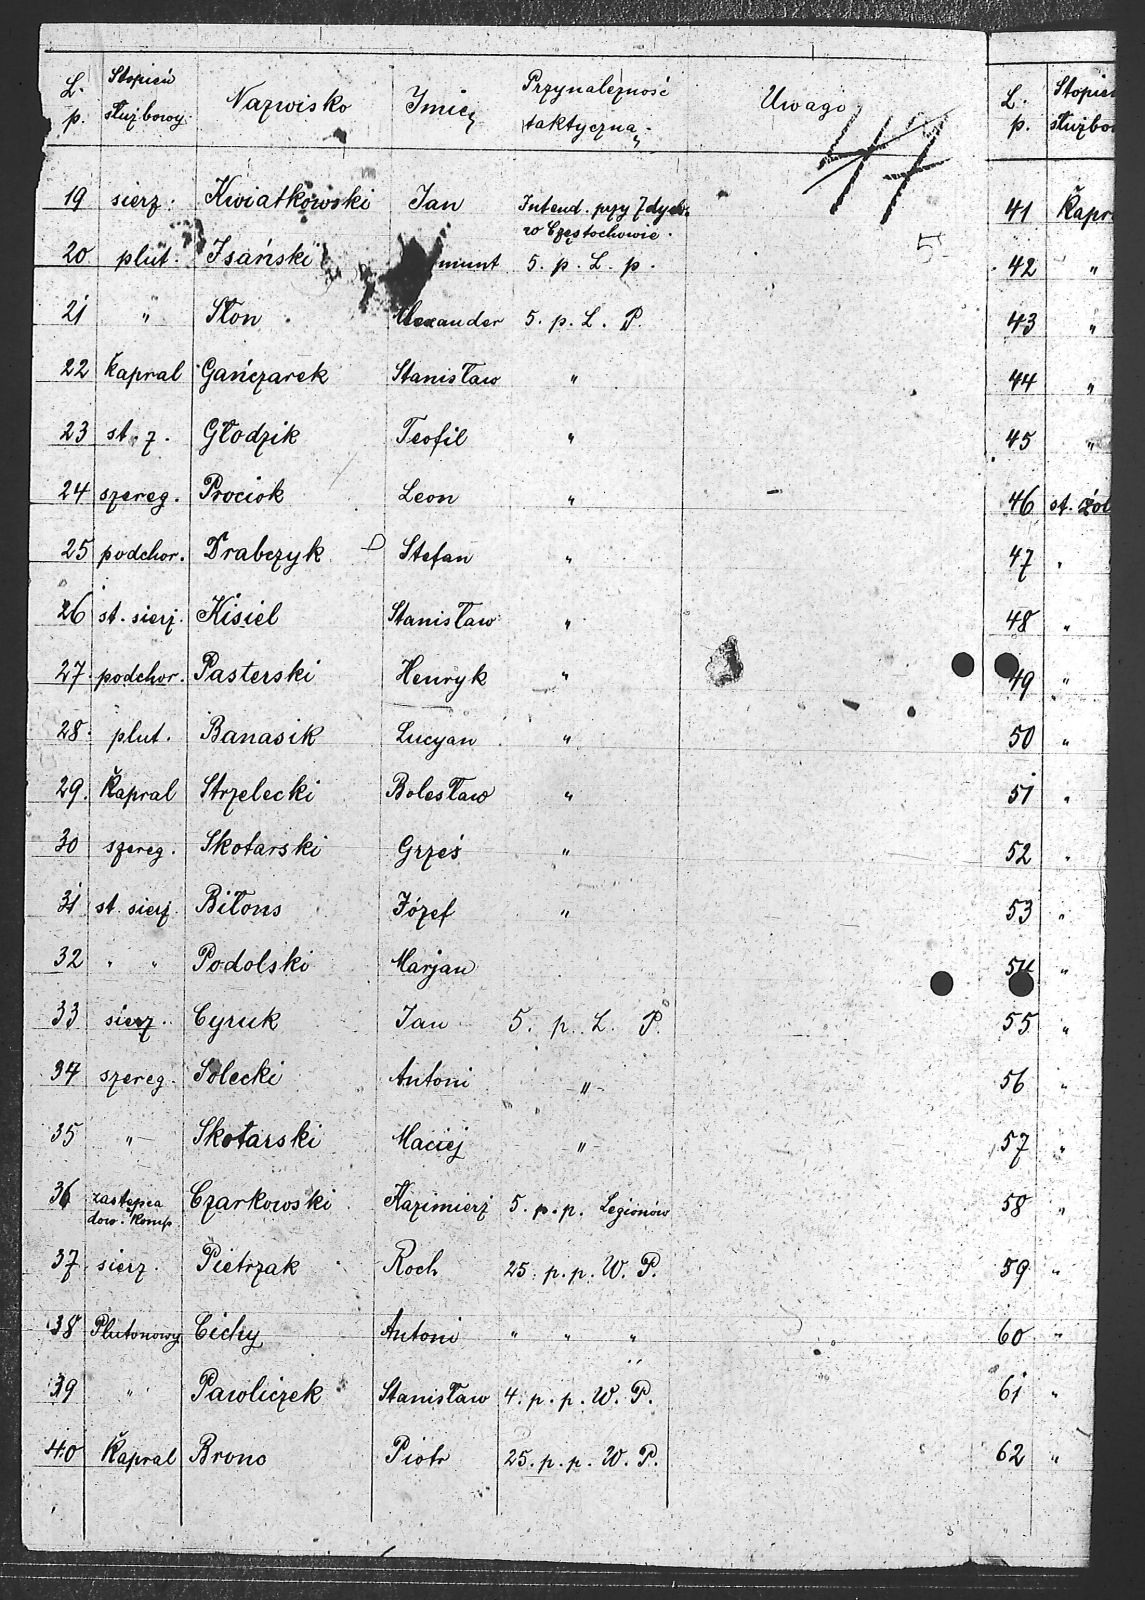 L. p. Stopień służbowy Nazwisko Imię Przynależność taktyczna Uwago
47
5
19 sierz. Kwiatkowski Jan Intend. przy 7 dyw. w Częstochowie.
20 plut. Isański munt 5. p. L. p.
21 " Słon Alexander 5. p. L. P.
22 Kapral Gańczarek Stanisław "
23 st. ż. Głodzik Teofil "
24 szereg. Prociok Leon "
25 podchor. Drabczyk D Stefan "
26 st. sierż. Kisiel Stanisław "
27. podchor. Pasterski Henryk "
28. plut. Banasik Lucyan "
29. Kapral Strzelecki Bolesław "
30 szereg. Skotarski Grześ "
31 st. sierż. Biłons Józef "
32 " " Podolski Marjan
33 sierż. Cyruk Jan 5. p. L. P.
34 szereg. Solecki Antoni "
35 " Skotarski Maciej "
36 zastępca dow. Komp. Czarkowski Kazimierz 5. p. p. Legionów
37 sierż. Pietrzak Roch 25. p. p. W. P.
38 Plutonowy Cichy Antoni " " "
39 " Pawliczek Stanisław 4. p. p. W. P.
40 Kapral Brono Piotr 25. p. p. W. P.
L. p. Stopień służbo
41 Kapr
42 "
43 "
44 "
45 "
46 st. żoł
47 "
48 "
49 "
50 "
51 "
52 "
53 "
54 "
55 "
56 "
57 "
58 "
59 "
60 "
61 "
62 "